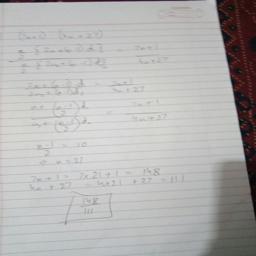 (7n+1) (4n+27)
n/2 {2a+(n-1)d} / n/2 {2a+(n-1)d} = 7n+1 / 4n+27
2a+(n-1)d / 2a+(n-1)d = 7n+1 / 4n+27
a+(n-1/2)d / a+(n-1/2)d = 7n+1 / 4n+27
n-1/2 = 10
n=21
7n+1 = 7×21+1 = 148
4n+27 = 4×21 +27 = 111
148/111